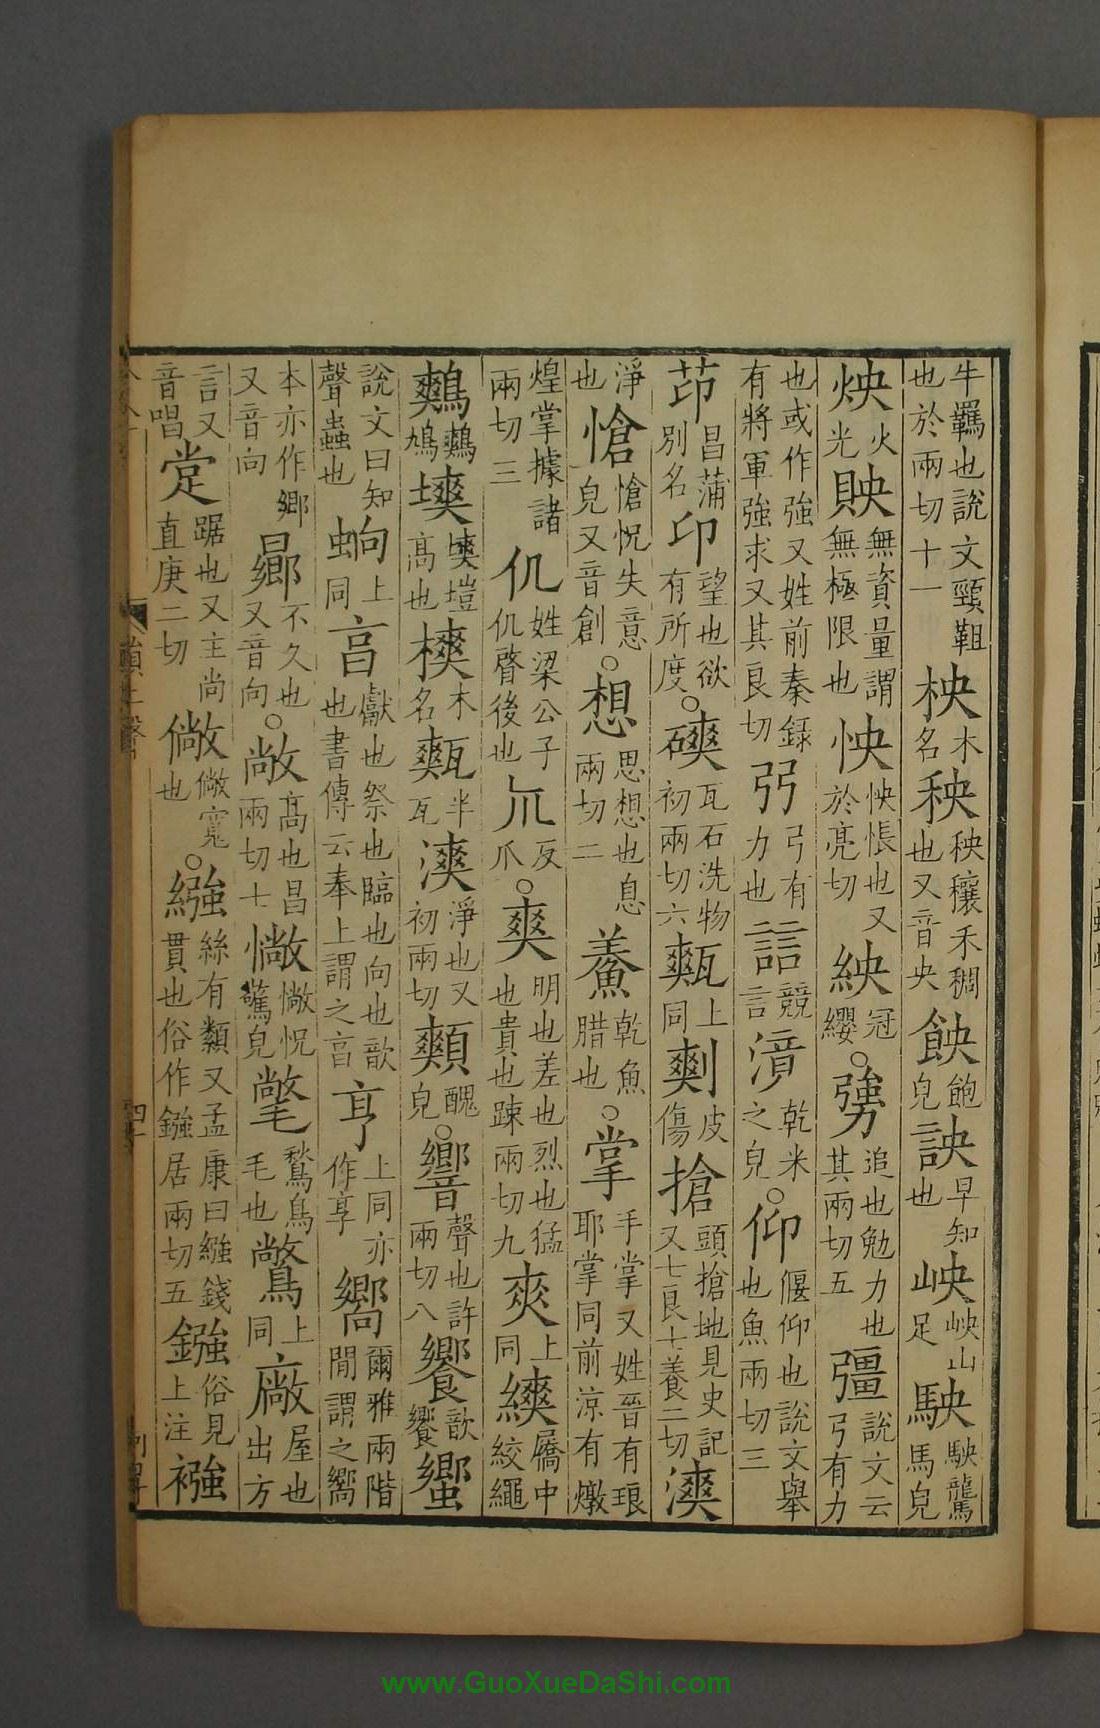 牛羈也說文頸靼也於兩切十一柍木名秧秧穰禾稠也又音央䬬飽皃詇早知也岟岟山足駚駚䮾馬皃
炴火光䝘無資量謂無極限也怏怏悵也又於亮切紻冠纓○勥追也勉力也其兩切五彊說文云弓有力
也或作強又姓前秦錄有將軍強求又其良切弜弓有力也誩競言滰乾米之皃○仰偃仰也說文舉也魚兩切三
䒢昌蒲別名卬望也欲有所度○磢瓦石洗物初兩切六㼽上同皮傷搶頭搶地見史記又七良七養二切漺
淨也愴愴怳失意皃又音創○想思想也息兩切二鯗乾魚腊也○掌手掌又姓晉有琅耶掌同前涼有燉
煌掌據諸兩切三仉姓梁公子仉䏿後也反爪○爽明也差也烈也猛也貴也踈兩切九上同縔屩中絞繩
鷞鷞鳩塽塽塏高也樉木名㼽半瓦漺淨也又初兩切䫪醜皃○響聲也許兩切八饗歆饗蠁
說文曰知聲蟲也蚼上同亯獻也祭也臨也向也歆也書傳云奉上謂之亯亨上同亦作享嚮爾雅兩階閒謂之嚮
本亦作鄉又音向曏不久也又音向○敞高也昌兩切十憿怳驚皃氅鶖鳥毛也上同廠屋也出方
言又音唱踞也又主尚直庚二切寬也○繈絲有纇又孟康曰繈錢貫也俗作鏹居兩切五鏹俗見上注襁
www.GuoXueDaShi.com